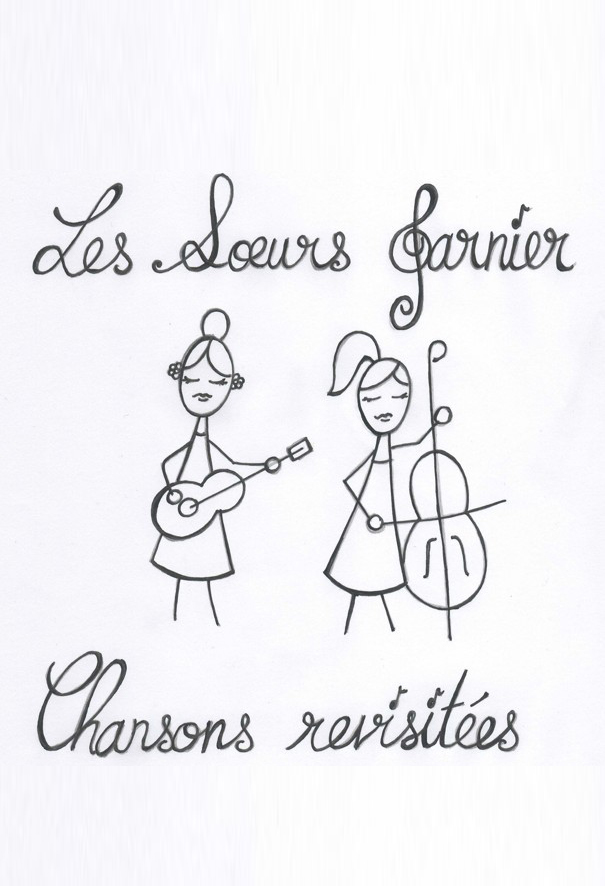 Les Sœurs Garnier
Chansons revisitées